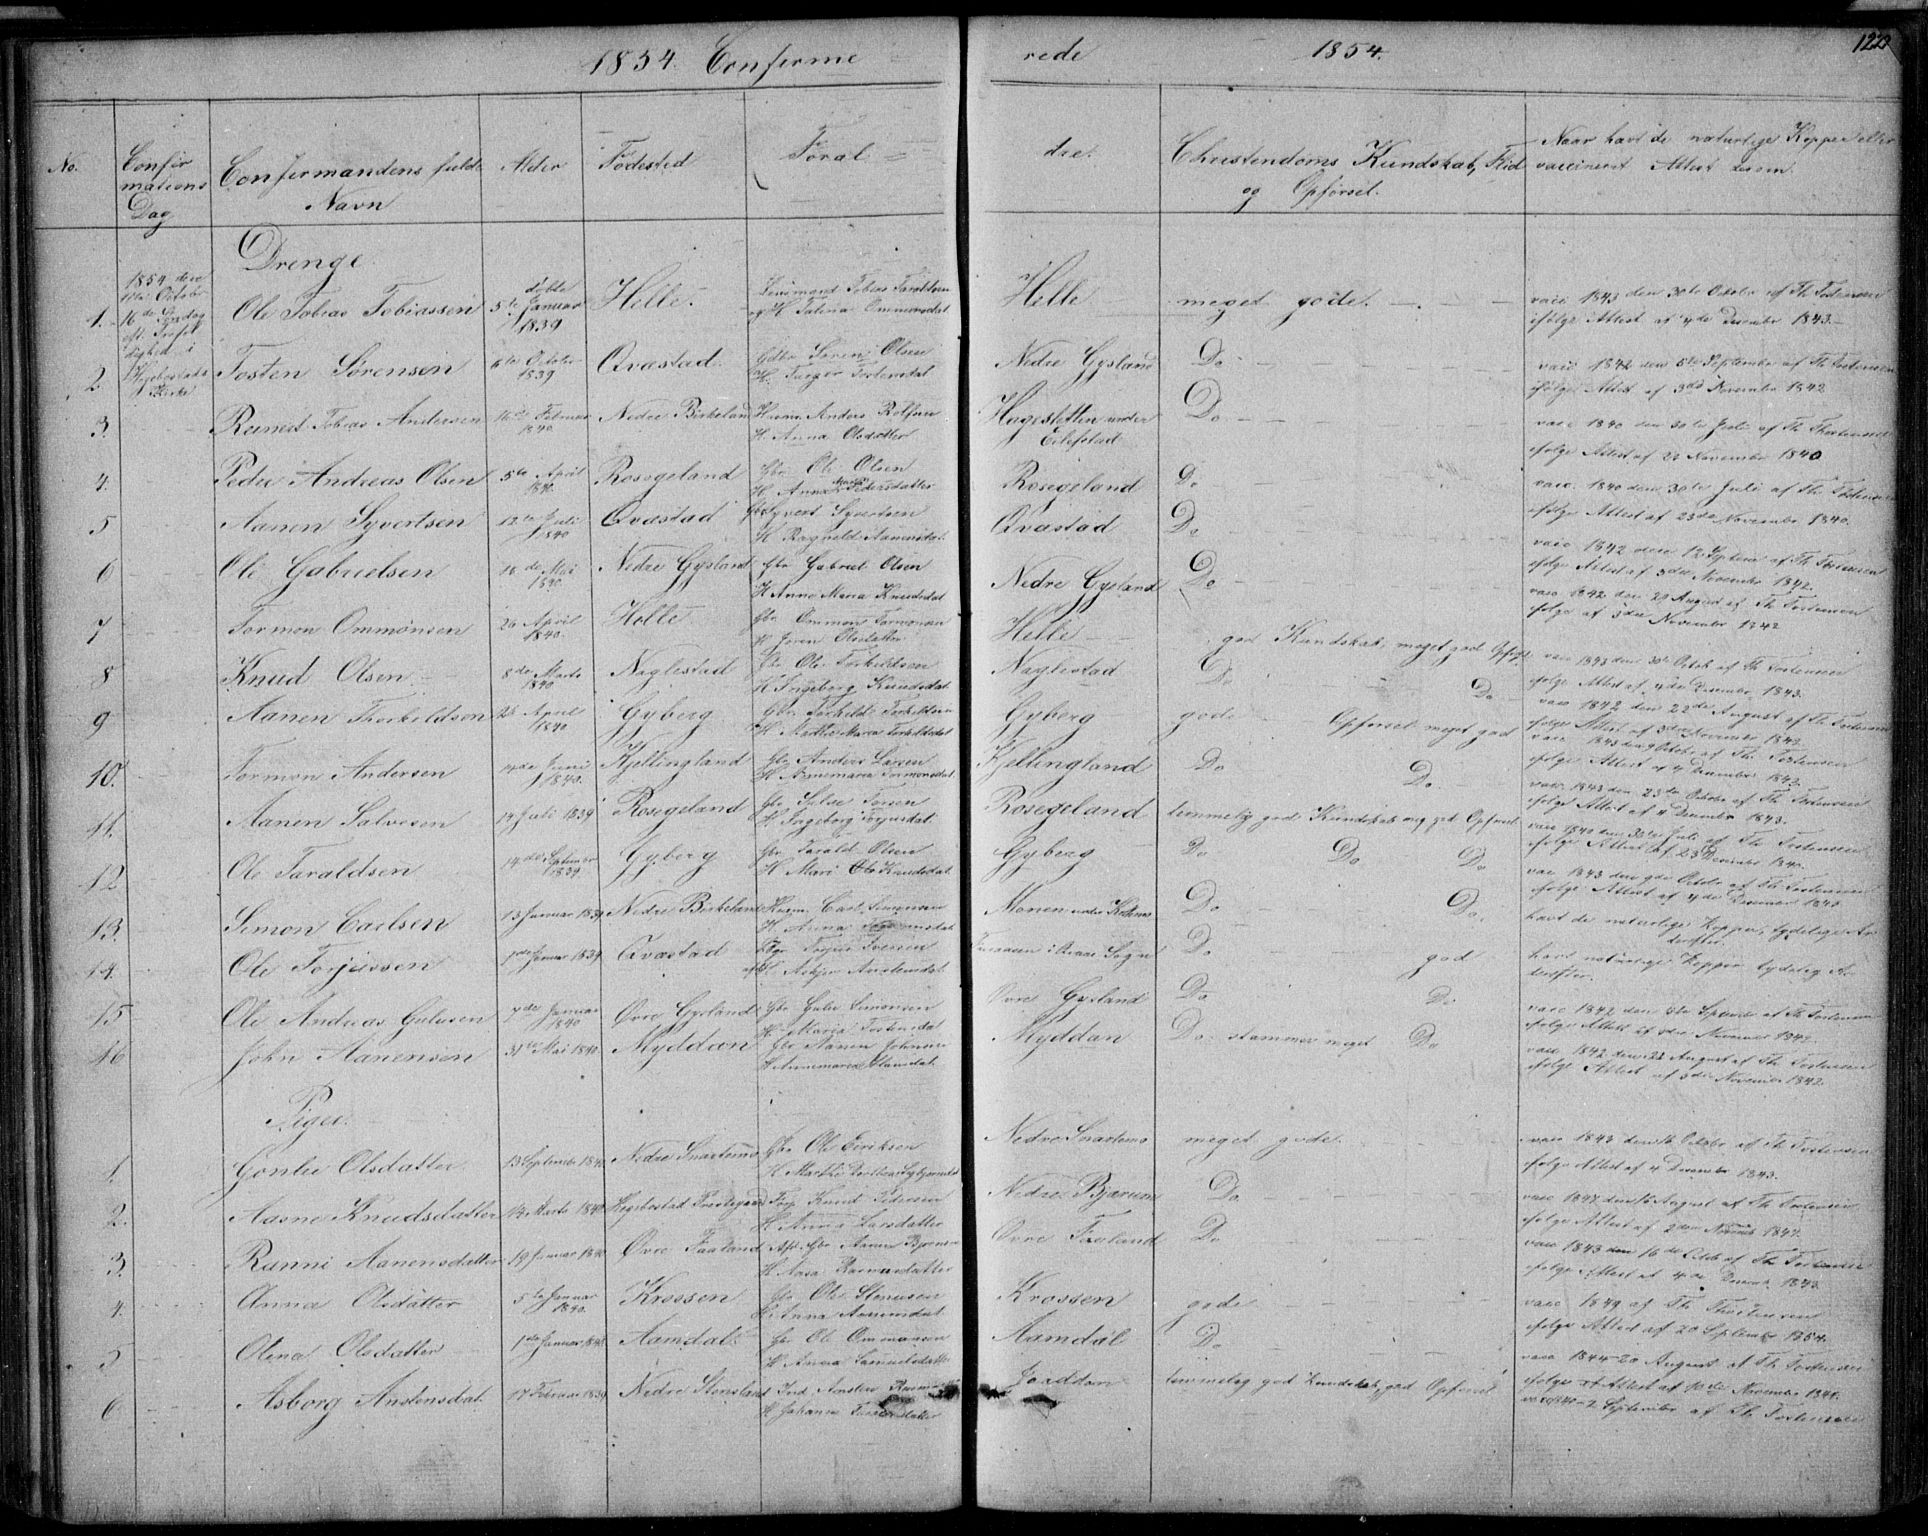 1854. Confirme
rede 1854.
122
No. Confir
mations
Dag Confirmandens fulde
Navn Alder Fødested Foræl =
dre. Christendoms Kundskab, Flid
og Opførsel. Naar havt de naturlige Kopper eller
vaccineret Attest
Drenge
1854 den
1. 16de Søndag Ole Tobias Tobiassen døbte 5te Januar 1839 Helle. Lensmand Tobias Taraldsen
og H. Talena Ommonsdat Helle meget gode. vacc 1843 den 30te Octobr af Th. Tostensen
ifølge Attest af 4de Decembr 1843.
2 Tosten Sørensen 6te October 1839 Qvæstad. Gdbr Søren Olsen
H. Tostensdat Nedre Gysland Do vacc 1842 den 5te September af Th Tostensen
ifølge Attest af 3de November 1842
3. Tobias Andersen 16de Februar 1840 Nedre Birkeland Huusm Anders Rolfsen
H. Anna Olsdatter Hagestetten under
Eilefstad Do vacc 1840 den 30te Juli af Th Thostensen
ifølge Attest af 23 November 1840
4. Peder Andreas Olsen 5te April 1840. Rossgeland Gbr Ole Olsen
H. Anna Pedersdatter Rosegeland Do vacc. 1840 den 30te Juli af Th. Tostensen
ifølge Attest af 23de November 1840.
5 Aanen Syvertsen 12te Juli 1840 Qvæstad Gbr Syvert Syvertsen
H Ragnild Aanensdat Qvæstad Do vacc 1842 den 12 Septbr af Th Tostensen
ifølge Attest af 3die November 1842.
6 Ole Gabrielsen 16de Mai 1840. Nedre Gysland Gbr Gabriel Olsen
H Anne Maria Knudsdat Nedre Gysland Do vacc 1842 den 29 August af Th Tostensen
ifølge af 3die November 1842
7 Tormon Ommonsen 26 April 1840. Helle Gbr Ommon Tormonsen
H Olsdatter Helle god Kundskab, meget god Opfør
8 Knud Olsen 8de Marts 1840 Naglestad Gbr Ole Torkildsen
H Ingeborg Knudsdat Naglestad Do Do vacc 1843 den 30te Octob af Th Tostensen
ifølge Attest af 4de December 1843.
9 Aanen Thorkildsen 26 April 1840 Gyberg Gbr Torkild Torkildsen
H Marthe Maria Torkildsdat Gyberg gode Opførsel meget god vacc 1842 den 22de August af Th Tostensen
ifølge Attest af 3die November 1842
10. Tormon Andersen 14de Juni 1840. Kjellingland Gbr Anders Larsen
H. Annemaria Tormonsdat Kjellingland Do Do. vacc 1843 den 9 Octobr af Th. Tostensen
ifølge Attest af 4 December 1843.
11. Aanen Salvesen 14 Juli 1839 Rosegeland Gbr Salve
H. Ingeborg Torjusdat Rosegeland temmelig god Kundskab meg. god Opførsel vacc. 1843 den 23de Octobr af Th Tostensen
ifølge Attest af 4 December 1843.
12 Ole Taraldsen 14de September 1839 Gyberg Gbr Tarald Olsen
H Mari Knudsdat Gyberg Do Do Do vacc 1840 den 30te Juli af Th Tostensen
ifølge Attest af 23 December 1840.
13. Simon Carlsen 13 Januar 1839 Nedre Birkeland Huusm. Carl Simonsen
H. Anna Monen under Do Do. vacc 1843 den 9de Octobr af Th Tostensen
ifølge Attest af 4de December 1843.
14. Ole Torjussen Januar 1839 Qvæstad Torjus Iversen
H Asbjør Anstensdat i Sogn Do god havt de naturlige Kopper, tydelige Ar
derefter.
15 Ole Andreas Gulusen 7de Januar 1840 Øvre Gysland Gbr Gulu Simonsen
H. Maria Tostensdat Øvre Gysland Do Do havt naturlige Kopper tydelig Ar
derefter.
16 John Aanensen 31te Mai 1840. Myddan Gbr Aanen Johnsen
H Annemaria Olausdat. Myddan Do stammer meget Do vacc 1842 den 5te Septembr af Th Tostensen
ifølge Attest af 3die November 1842.
vacc 1842 den 22 August af Th. Tostensen
ifølge Attest af 3die November 1842.
Piger.
1. Gonlee Olsdatter 13 September 1840 Nedre Snartemo Gbr Ole Eiriksen
H Marthe Nedre Snartemo meget gode. vacc 1843 den 16 Octobr af Th Tostensen
ifølge Attest af 4 December 1843.
2. Aasne Knudsdatter 14 Marts 1840 Hegebostad Præstegaard Knud Pedersen
H Anna Larsdatter Nedre Bjærum Do. vacc 1847 den 16 August af Th Tostensen
ifølge Attest af 2den Novemb 1847.
3. Ranni Aanensdatter 19 Januar 1840 Øvre Faaland Afd. Gbr Aanen Bjørnsen
H Aasa Rasmusdatter Øvre Faaland Do vacc 1843 den 16de Octob af Th Tostensen
ifølge Attest af 4de December 1843.
4. Anna Olsdatter 5te Januar 1840. Krossen Gbr Ole Stenersen
H. Anna Aanensdat Krossen gode vacc 1849 af Th Thostensen
ifølge Attest af 20 September 1854.
5 Olena Olsdatter 1de Januar 1840 Aamdal Gbr Ole Ommonsen
H Anna Samuelsdatter Aamdal Do vacc 1844 20 August af Th Tostensen
ifølge Attest af 10de November 1844.
6 Asborg Anstensdat. 17 Februar 1839 Nedre Stensland Ind. Ansten
H Johanne Tostensdatter Joaddan temmelig god Kundskab, god Opførsel 2 September af Th Tostensen